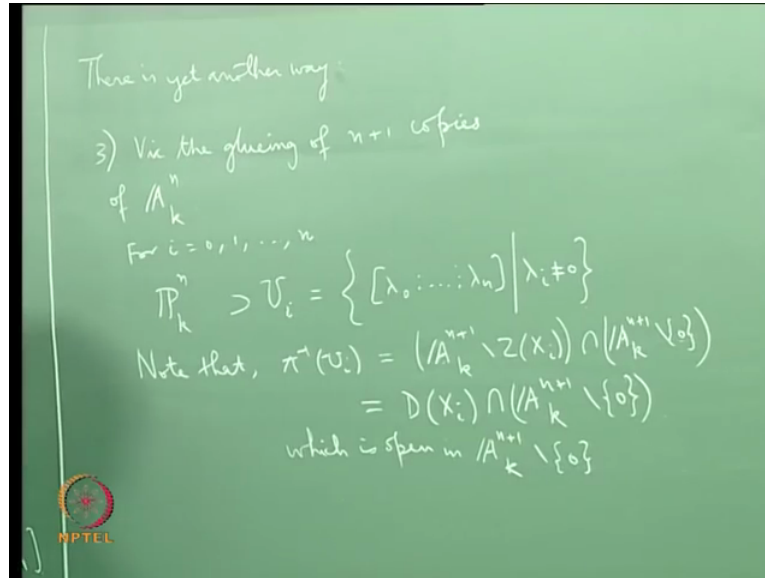 There is yet another way:
3) Via the glueing of n+1 copies
of 𝔸ₖⁿ
For i = 0, 1, ..., n
ℙₖⁿ ⊃ Uᵢ = { [λ₀ : ... : λₙ] | λᵢ ≠ 0 }
Note that, π⁻¹(Uᵢ) = (𝔸ₖⁿ⁺¹ \ Z(Xᵢ)) ∩ (𝔸ₖⁿ⁺¹ \ {0})
= D(Xᵢ) ∩ (𝔸ₖⁿ⁺¹ \ {0})
which is open in 𝔸ₖⁿ⁺¹ \ {0}
NPTEL